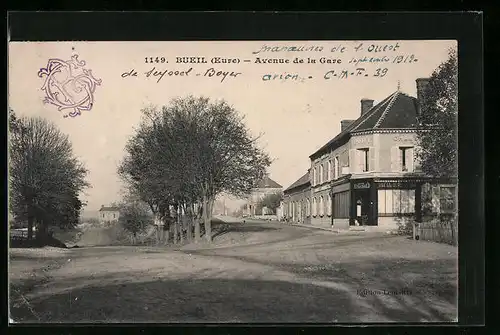 1149. BUEIL (Eure) — Avenue de la Gare
manœuvres de l'Ouest
Septembre 1912-
de Seyssel - Boyer
avion - C-M-F- 39
Edition